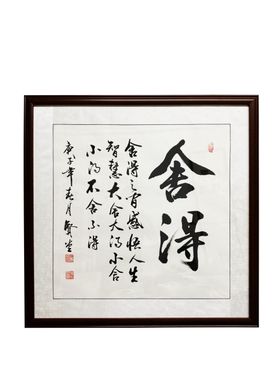 舍得
舍得之间感悟人生
智慧大舍大得小舍
小得不舍不得
庚子年春月